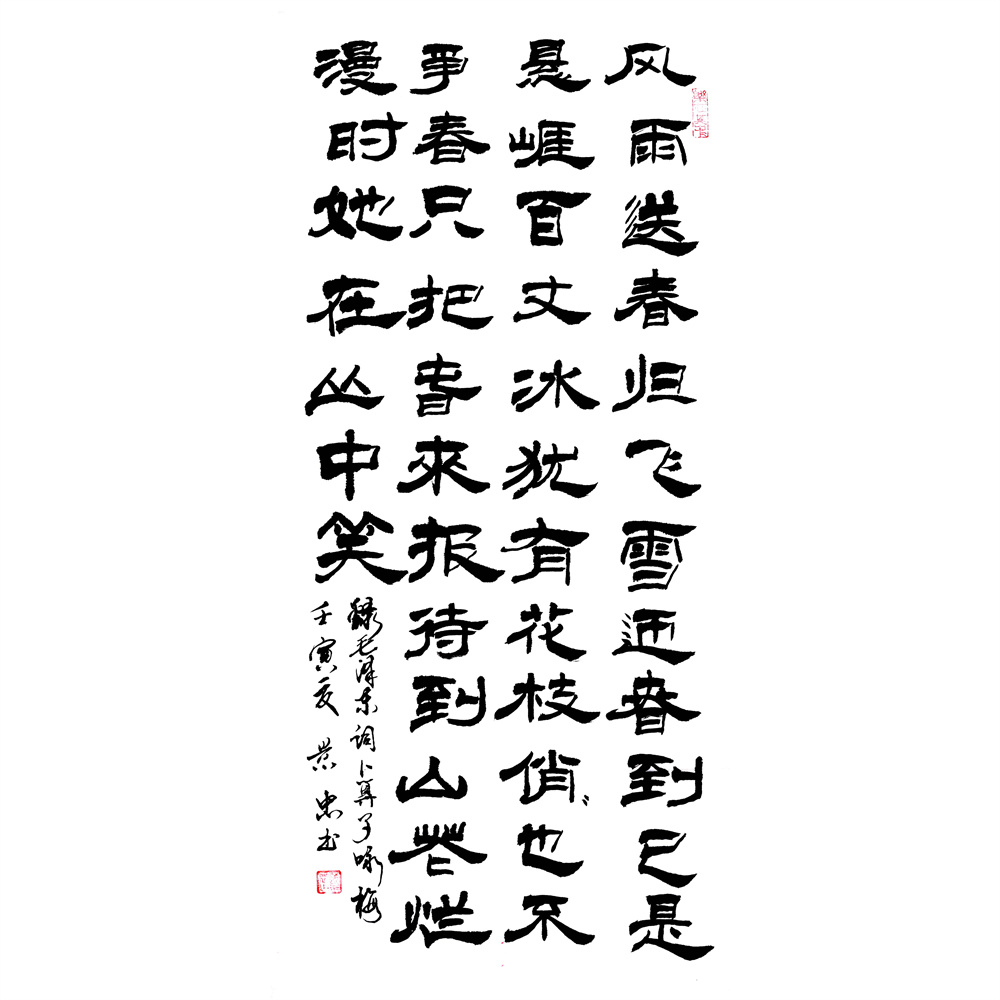 风雨送春归飞雪迎春到已是
悬崖百丈冰犹有花枝俏〻也不
争春只把春來报待到山花烂
漫时她在丛中笑
録毛泽东词卜算子咏梅
壬寅夏 忠书